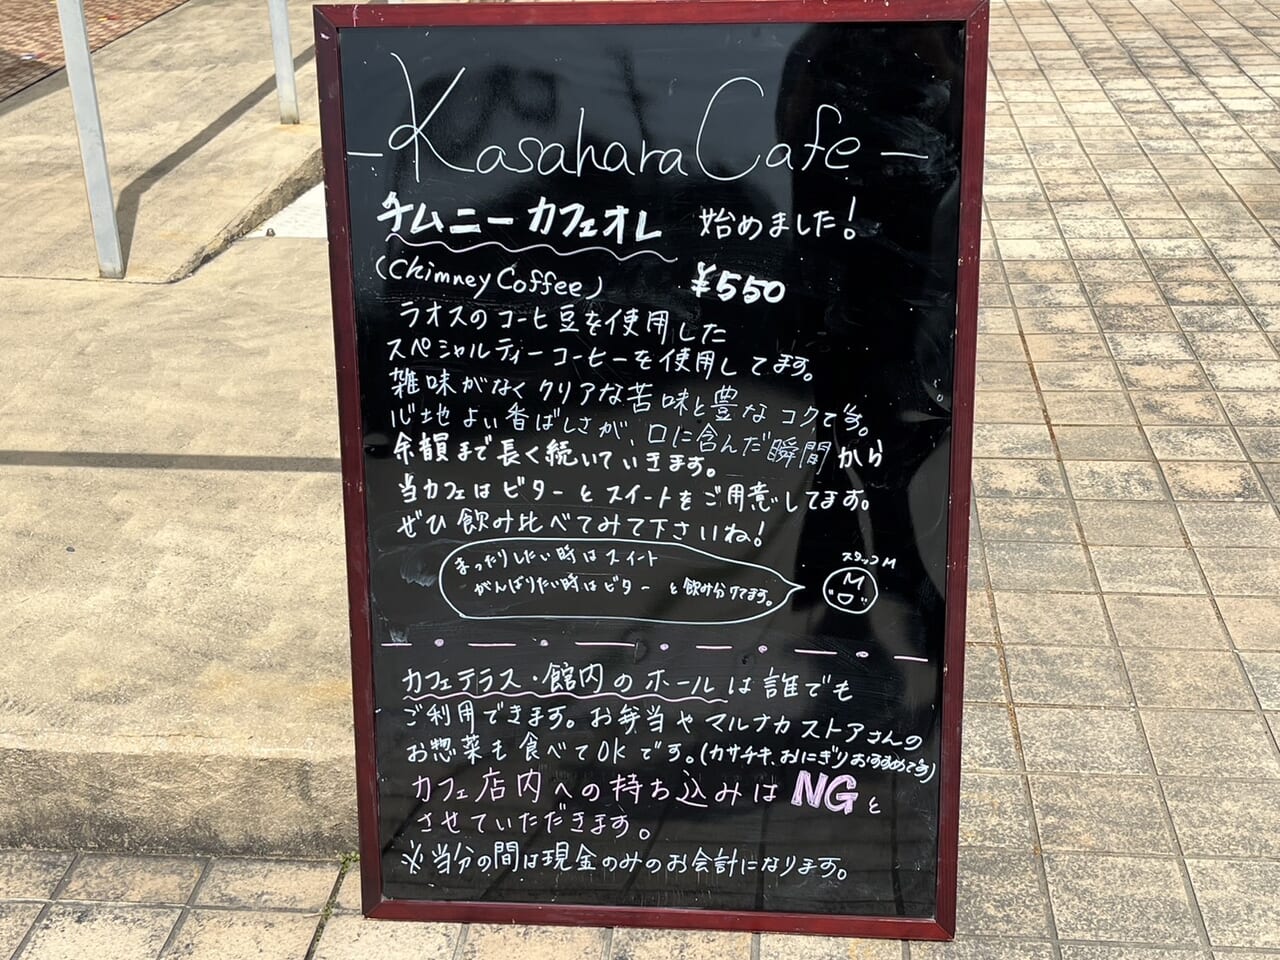 Kasahara Cafe
チムニーカフェオレ 始めました!
(Chimney Coffee) ¥550
ラオスのコーヒ豆を使用した
スペシャルティーコーヒーを使用してます。
雑味がなくクリアな苦味と豊なコクです。
心地よい香ばしさが、口に含んだ瞬間から
余韻まで長く続いていきます。
当カフェはビターとスイートをご用意してます。
ぜひ飲み比べてみて下さいね!
まったりしたい時はスイート
がんばりたい時はビター と飲み分けてます。
スタッフM
カフェテラス・館内のホールは誰でも
ご利用できます。お弁当やマルナカストアさんの
お惣菜も食べてOKです。(カサチキ、おにぎりおすすめです)
カフェ店内への持ち込みはNGと
させていただきます。
※当分の間は現金のみのお会計になります。